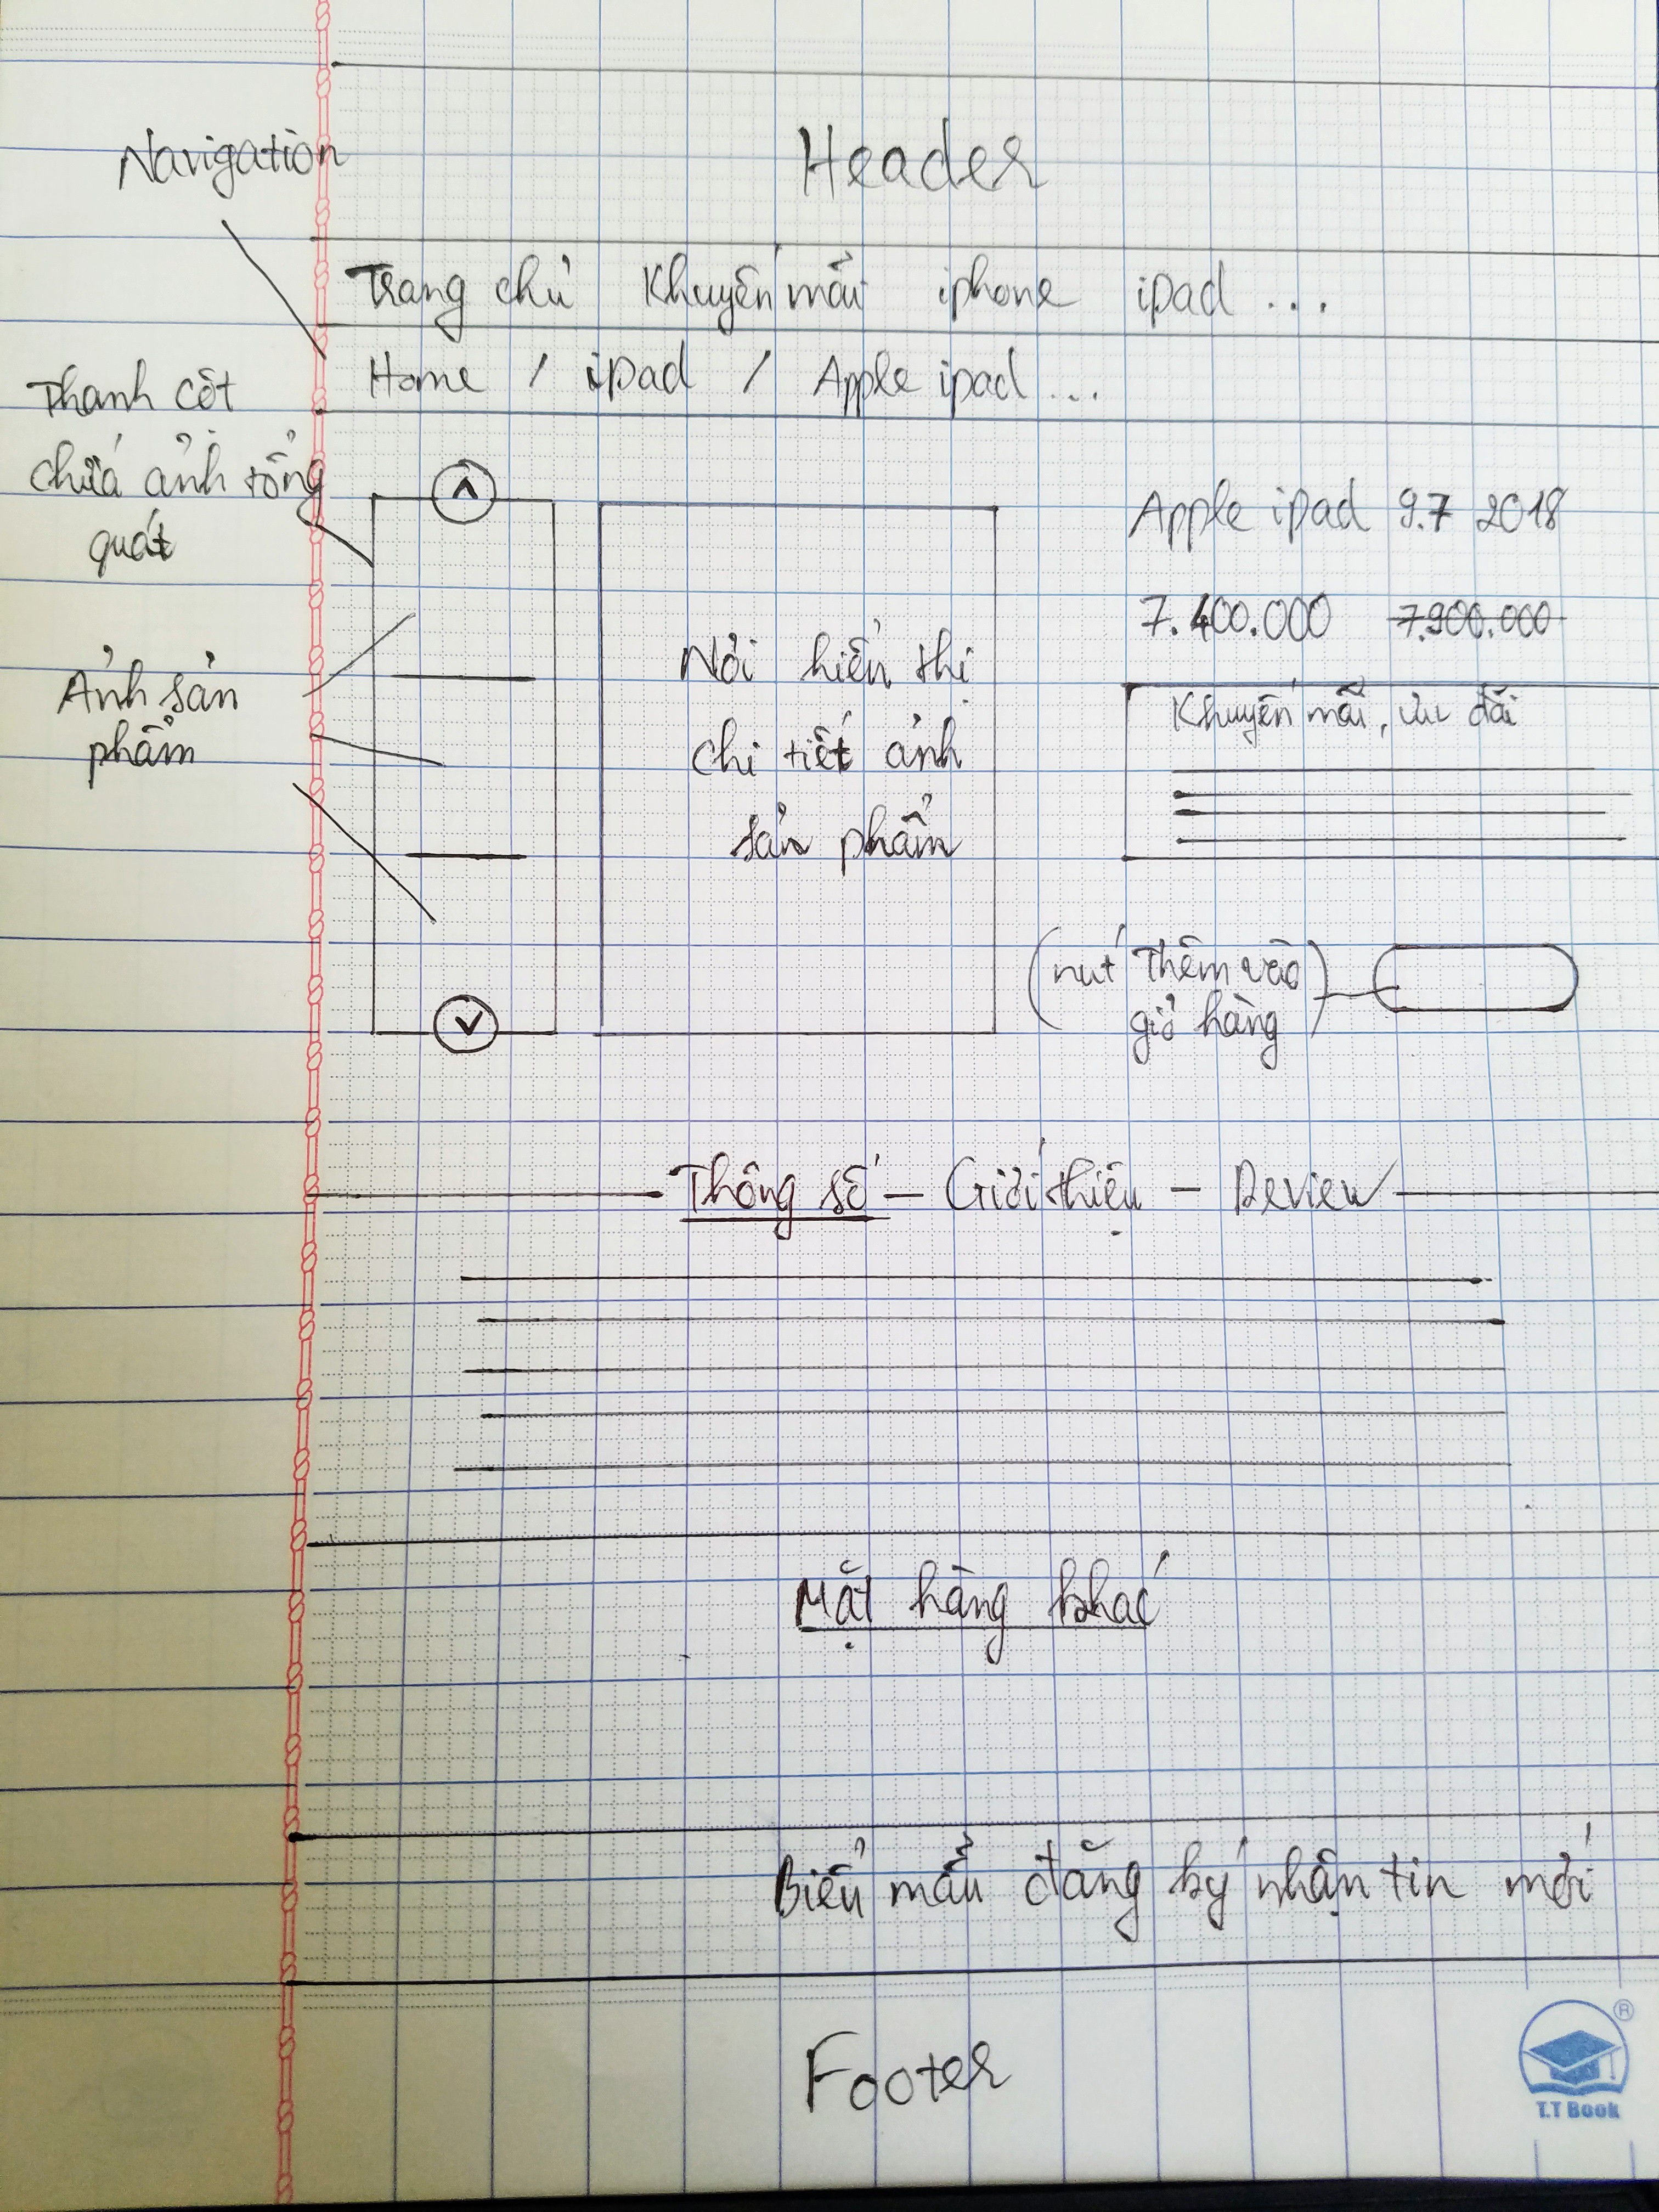 Navigation
Header
Trang chủ Khuyến mãi iphone ipad ...
Home / ipad / Apple ipad ...
Thanh cột
chứa ảnh tổng
quát
Ảnh sản
phẩm
Nơi hiển thị
chi tiết ảnh
sản phẩm
Apple ipad 9.7 2018
7.400.000 7.900.000
Khuyến mãi, ưu đãi
(nút thêm vào
giỏ hàng)
Thông số — Giới thiệu — Review
Mặt hàng khác
Biểu mẫu đăng ký nhận tin mới
Footer
®
T.T Book